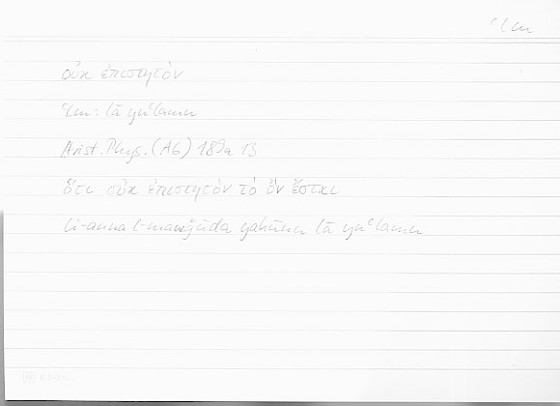 ʿlm
οὐκ ἐπιστητόν
ʿlm: lā yuʿlamu
Arist. Phys. (A6) 189a 13
ὅτι οὐκ ἐπιστητὸν τὸ ὂν ἔσται
li-anna l-mauǧūda yakūnu lā yuʿlamu